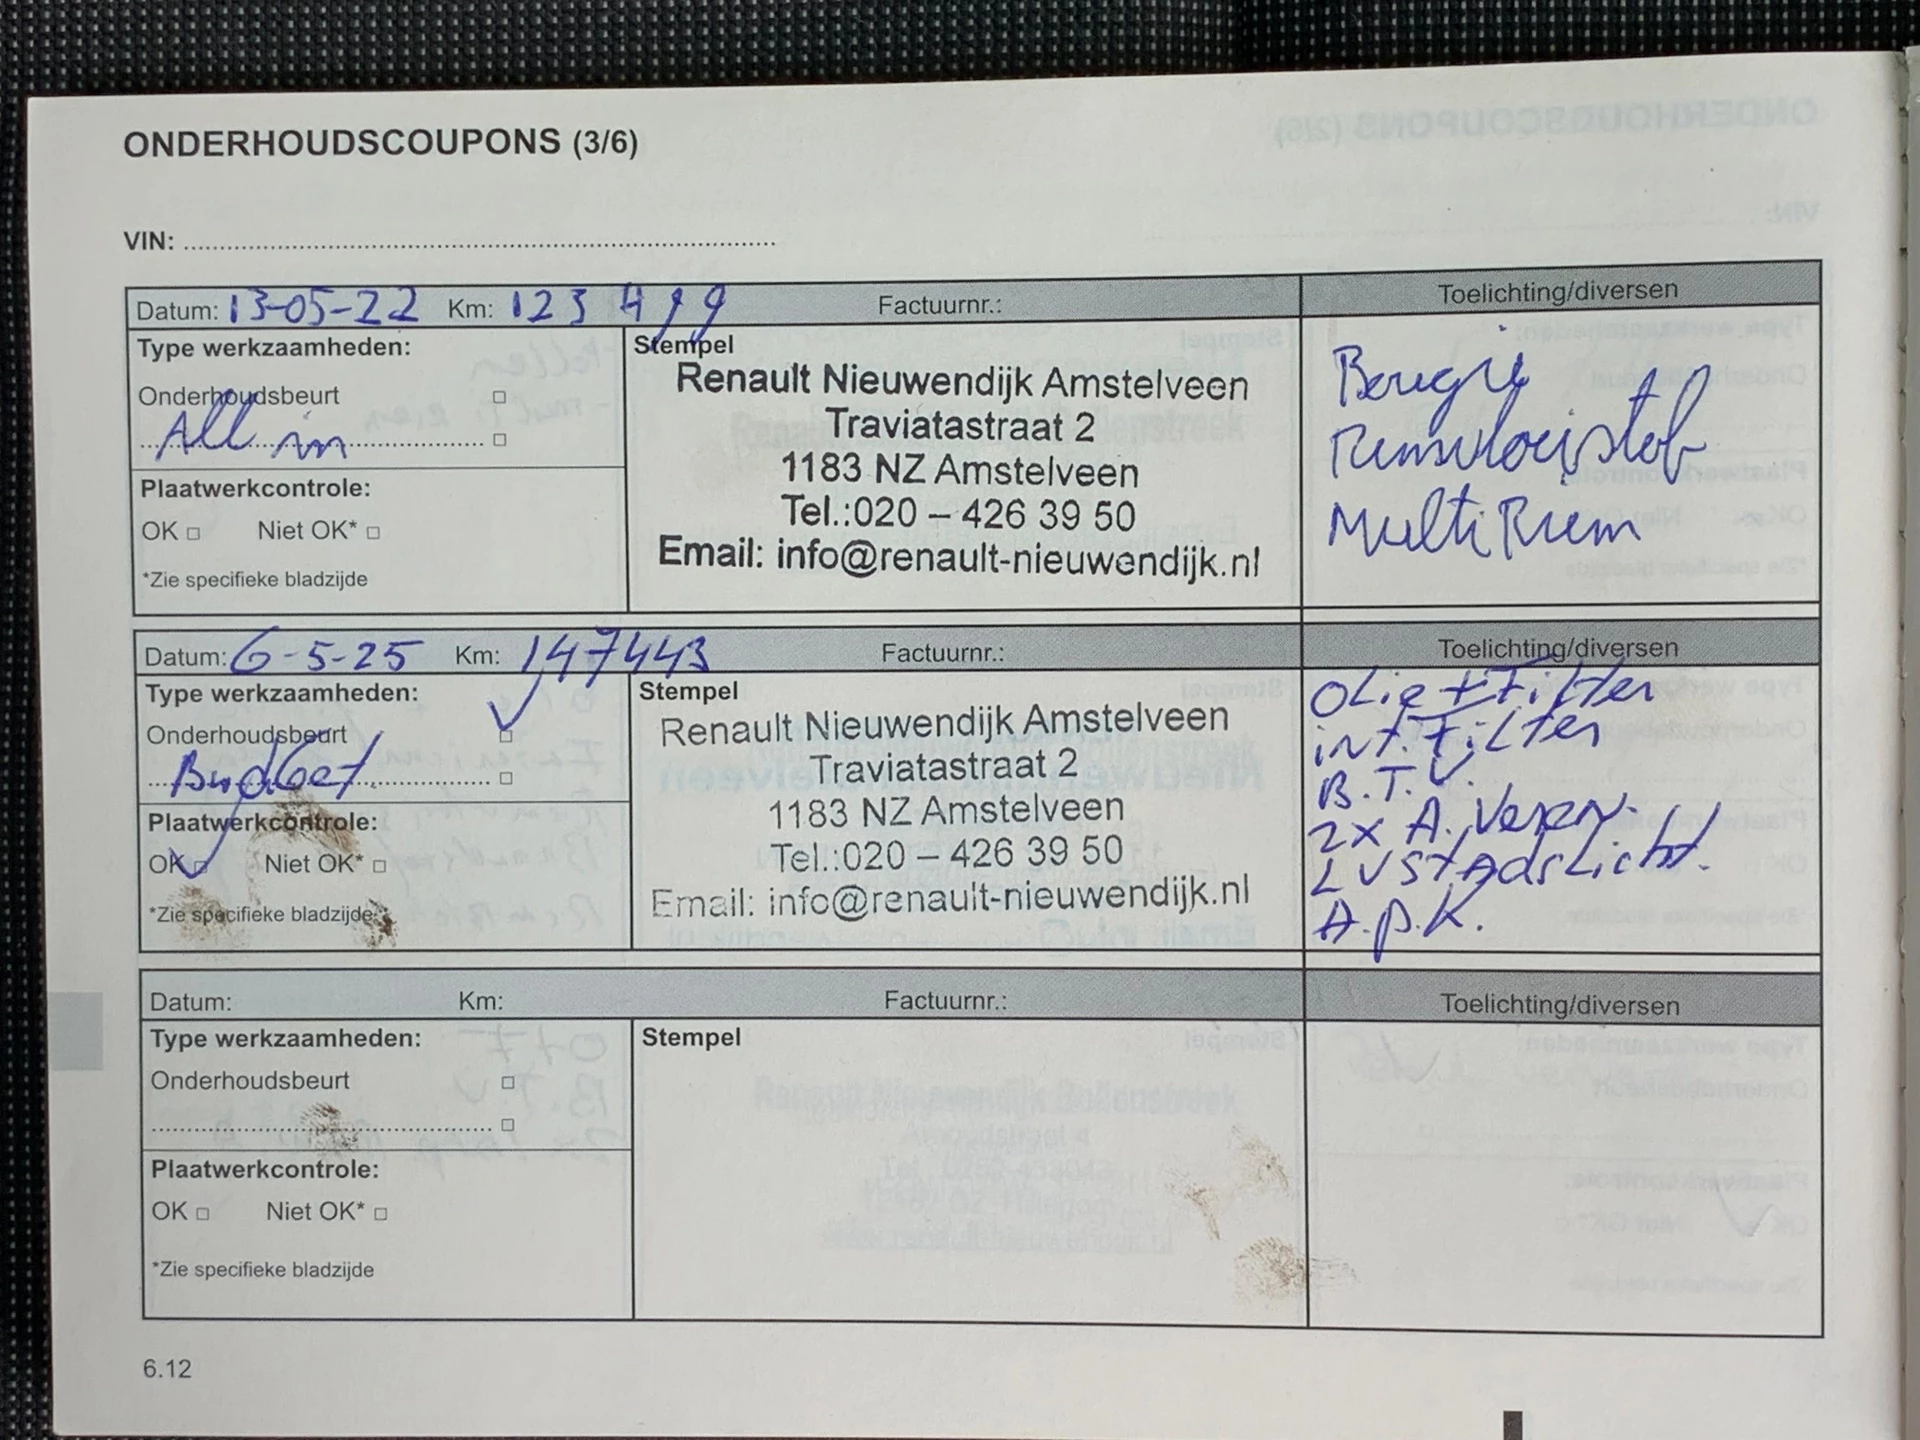 ONDERHOUDSCOUPONS (3/6)
VIN:
Datum: 13-05-22 Km: 123 499 Factuurnr.: Toelichting/diversen
Type werkzaamheden:
Onderhoudsbeurt
All in
Plaatwerkcontrole:
OK Niet OK*
*Zie specifieke bladzijde
Stempel
Renault Nieuwendijk Amstelveen
Traviatastraat 2
1183 NZ Amstelveen
Tel.:020 – 426 39 50
Email: info@renault-nieuwendijk.nl
Bougie
Remvloeistof
Multi Riem
Datum: 6-5-25 Km: 147443 Factuurnr.: Toelichting/diversen
Type werkzaamheden:
Onderhoudsbeurt
Budget
Plaatwerkcontrole:
OK Niet OK*
*Zie specifieke bladzijde
Stempel
Renault Nieuwendijk Amstelveen
Traviatastraat 2
1183 NZ Amstelveen
Tel.:020 – 426 39 50
Email: info@renault-nieuwendijk.nl
OLie + Filter
inT. Filter
B.T.V.
2x A. Veren.
LV STADSLicht.
A.P.K.
Datum: Km: Factuurnr.: Toelichting/diversen
Type werkzaamheden:
Onderhoudsbeurt
Plaatwerkcontrole:
OK Niet OK*
*Zie specifieke bladzijde
Stempel
6.12